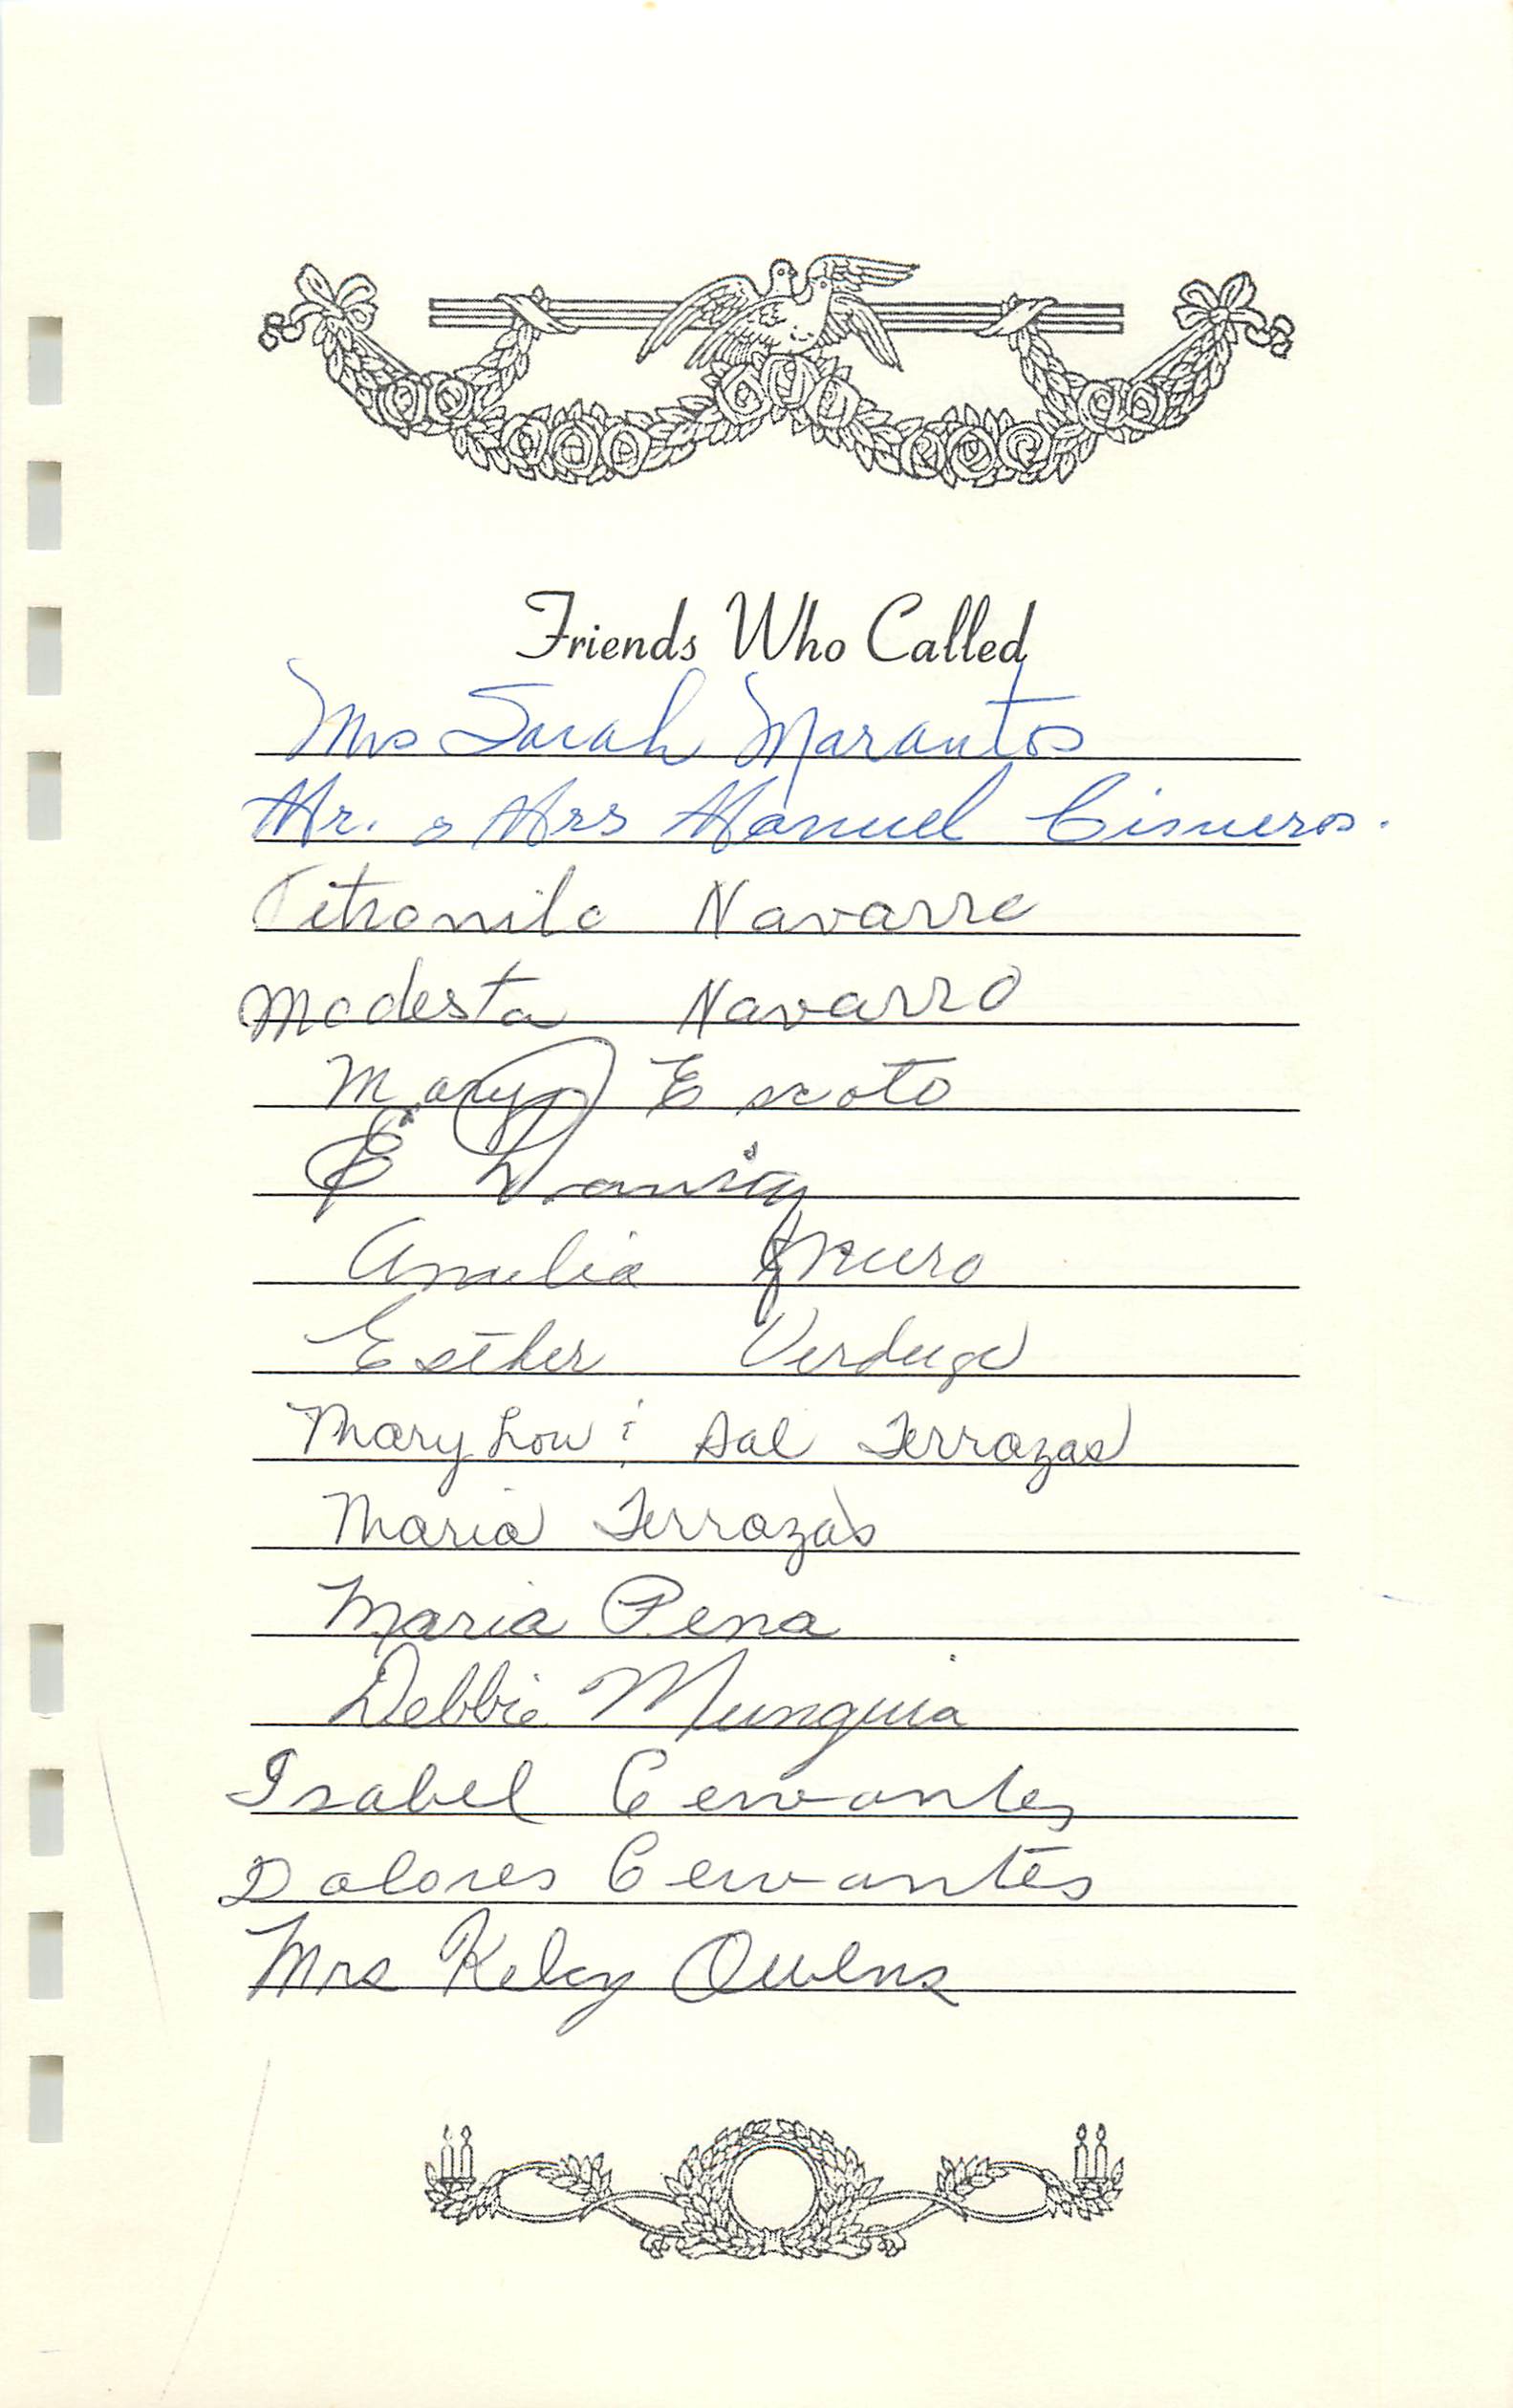 Friends Who Called
Mrs Sarah Marantos
Mr. & Mrs Manuel Cisneros.
Petronilo Navarro
Modesta Navarro
Mary Escoto
E
Amelia Muro
Esther Verdugo
Mary Lou & Sal Terrazas
Maria Terrazas
Maria Pena
Debbie Munguia
Isabel Cervantes
Dolores Cervantes
Mrs Kelcy Owens